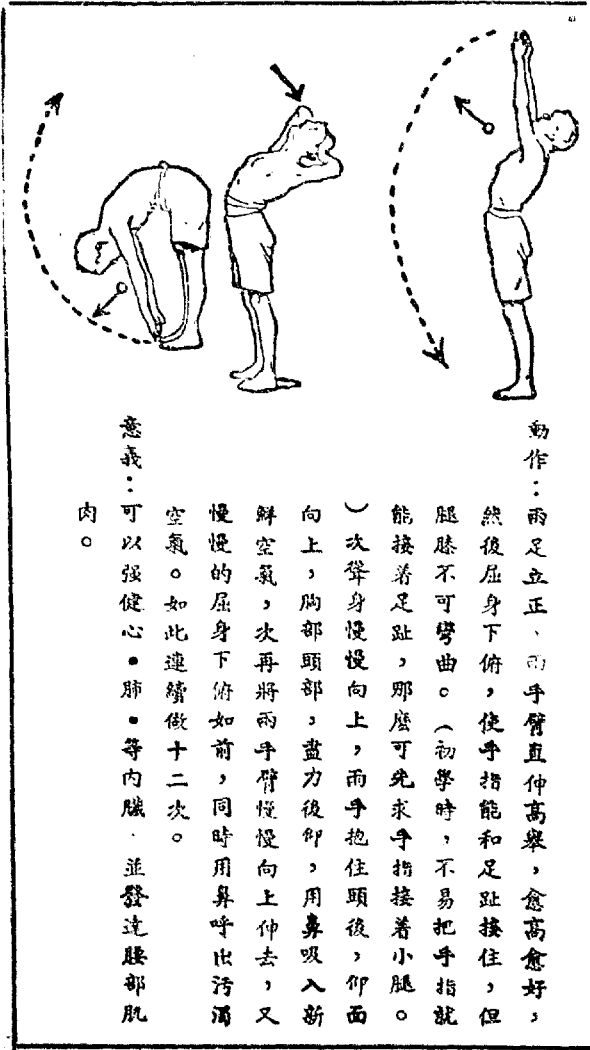 動作：兩足立正、兩手臂直伸高舉，愈高愈好，
然後屈身下俯，使手指能和足趾接住，但
腿膝不可彎曲。（初學時，不易把手指就
能接着足趾，那麽可先求手指接着小腿。
）次聳身慢慢向上，兩手抱住頭後，仰面
向上，胸部頭部，盡力後仰，用鼻吸入新
鮮空氣，次再將兩手臂慢慢向上伸去，又
慢慢的屈身下俯如前，同時用鼻呼出污濁
空氣。如此連續做十二次。
意義：可以强健心•肺•等内臟、並發達腰部肌
肉。